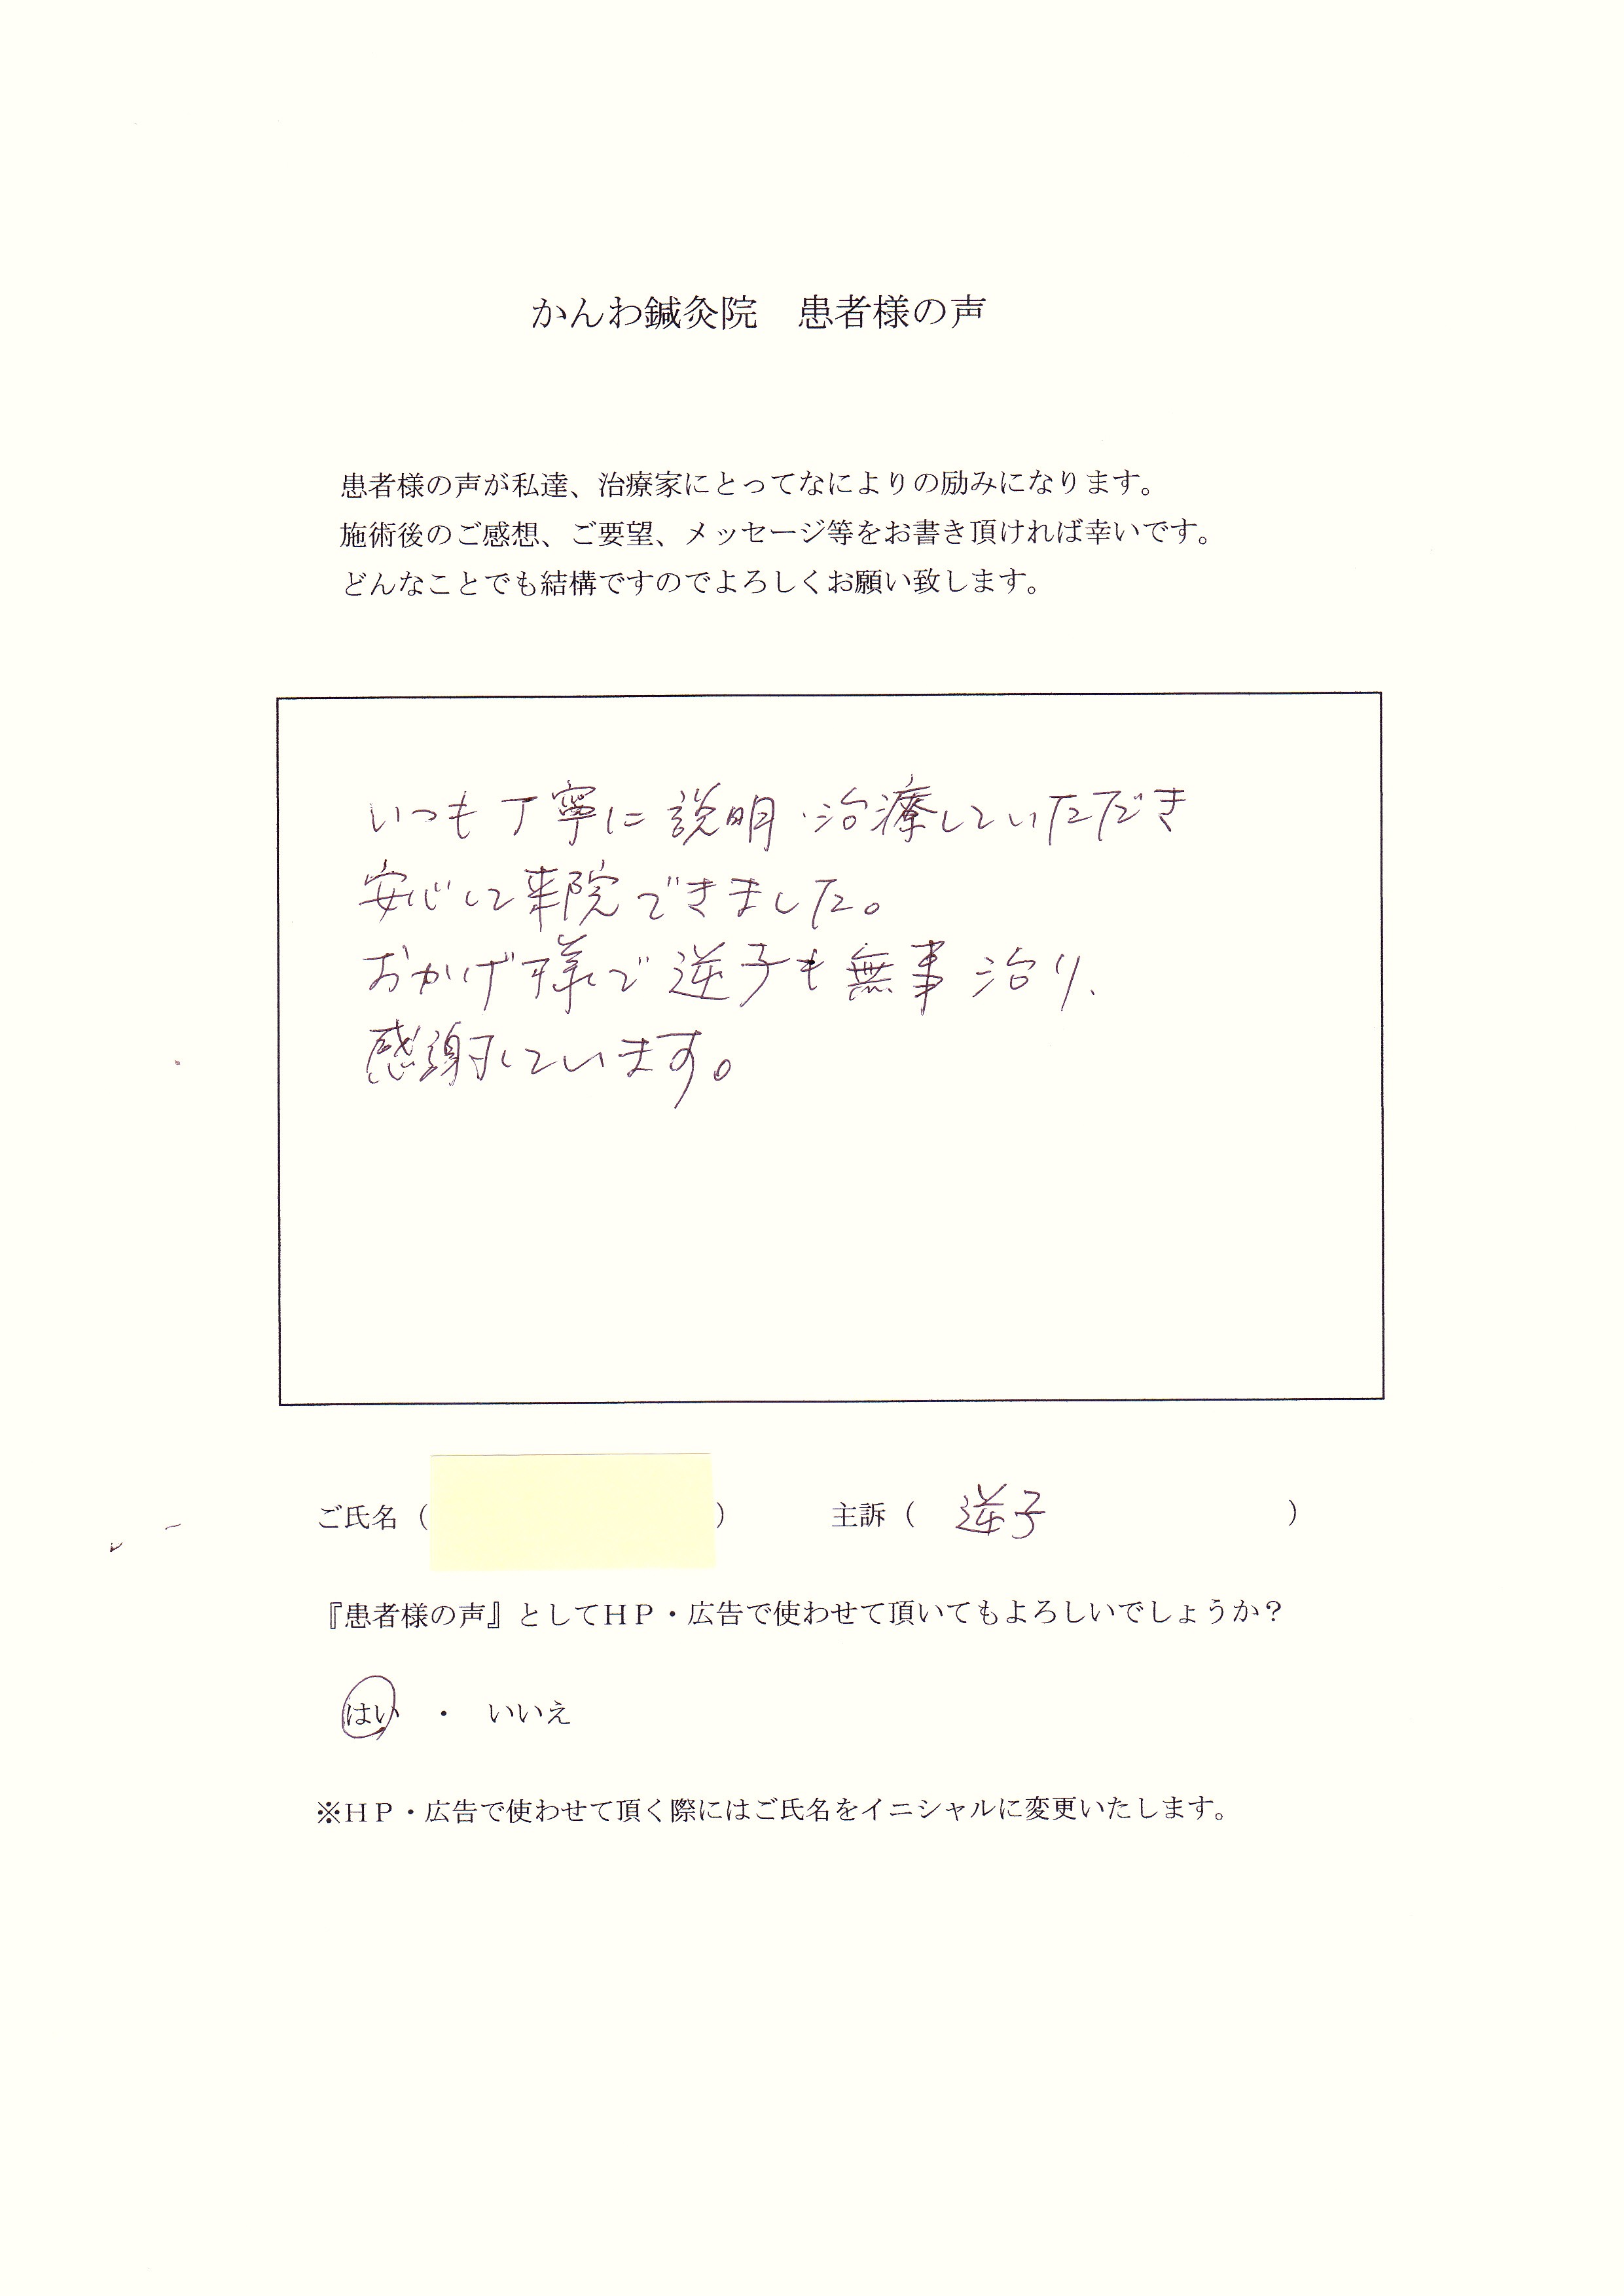 かんわ鍼灸院　患者様の声
患者様の声が私達、治療家にとってなによりの励みになります。
施術後のご感想、ご要望、メッセージ等をお書き頂ければ幸いです。
どんなことでも結構ですのでよろしくお願い致します。
いつも丁寧に説明・治療していただだき
安心して来院できました。
おかげ様で逆子も無事治り、
感謝しています。
ご氏名（　　　　　）　　　主訴（　逆子　　　　　　　）
『患者様の声』としてＨＰ・広告で使わせて頂いてもよろしいでしょうか？
はい　・　いいえ
※ＨＰ・広告で使わせて頂く際にはご氏名をイニシャルに変更いたします。